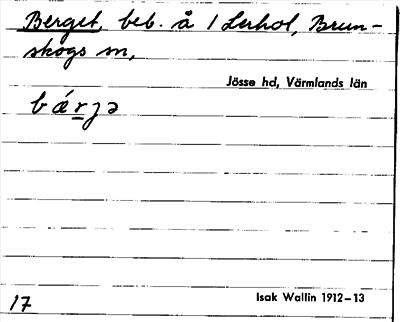 Berget, beb. å 1 Lerhol, Brun-
skogs sn,
Jösse hd, Värmlands län
bǽrjə
Isak Wallin 1912–13
17